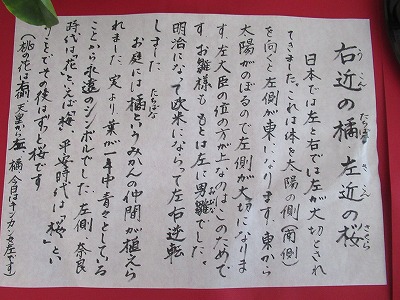 右近の橘 左近の桜
うこん たちばな さこん さくら
日本では左と右では左が大切とされ
てきました。これは体を太陽の側（南側）
を向くと左側が東になります。東から
太陽がのぼるので左側が大切になりま
す。左大臣の位の方が上なのはこのためで
す。お雛様ももとは左に男雛でした。
おびな
明治になって欧米にならって左右逆転
しました。
お庭には橘というみかんの仲間が植えら
たちばな
れました。実より、葉が一年中青々としてる
ことから永遠のシンボルでした。左側、奈良
時代は「花」といえば「梅」、平安時代は「桜」とい
うことでその後はずっと桜です。
（桃の花は 天皇から左 橘 今日はキンカンです）